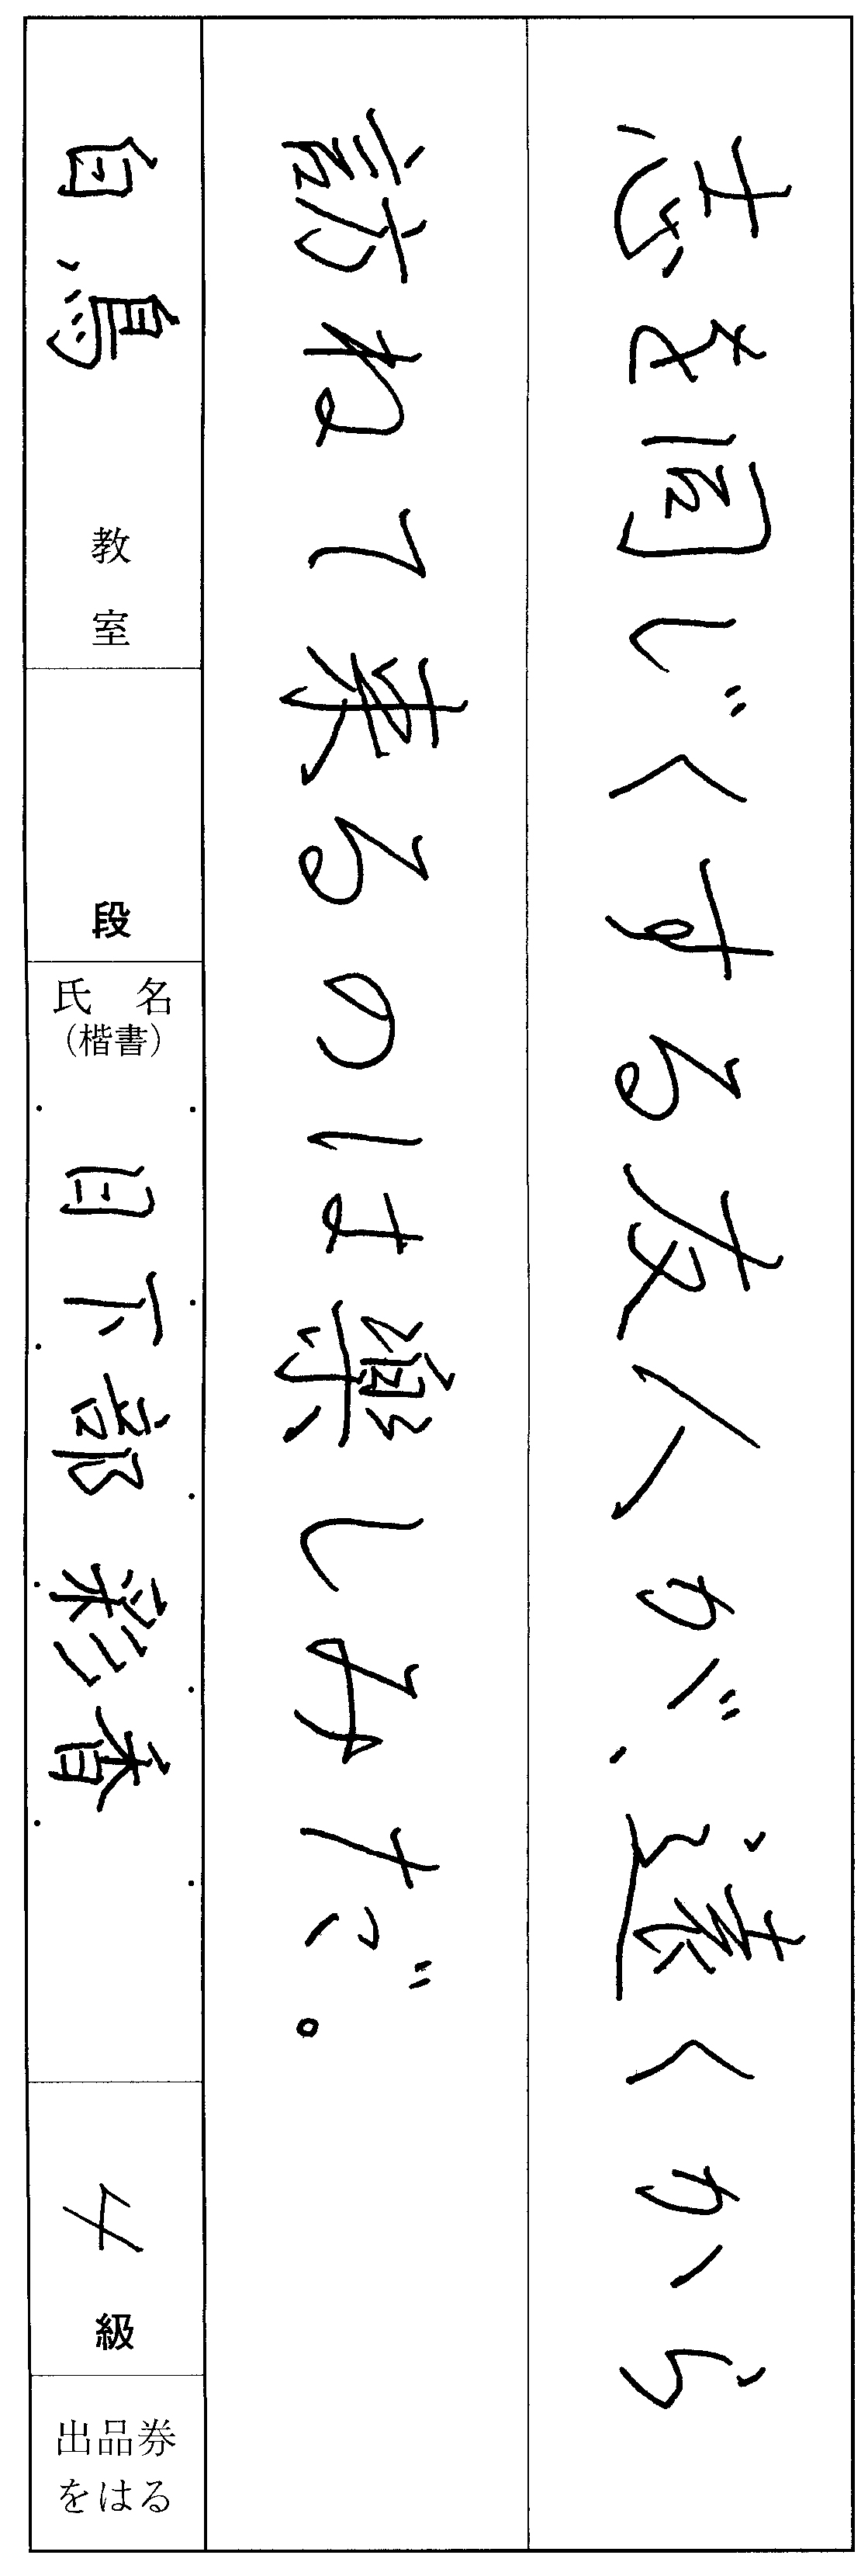 志を同じくする友人が、遠くから
訪ねて来るのは楽しみだ。
白鳥 教室
段
氏名
(楷書)
日下部彩香
4 級
出品券
をはる